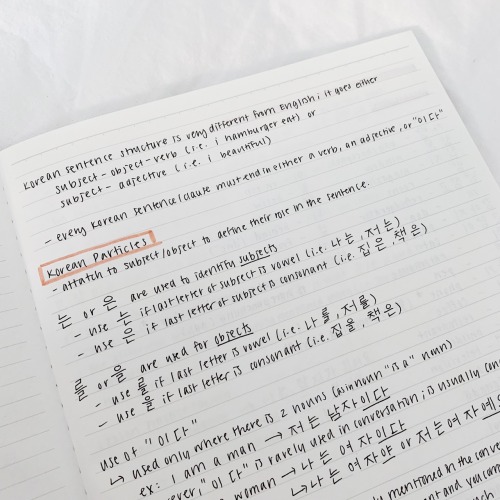 Korean sentence structure is very different from English; it goes either
subject-object-verb (i.e. i hamburger eat) or
subject-adjective (i.e. i beautiful)
- every Korean sentence/clause must end in either a verb, an adjective, or "이다"
Korean Particles
- attatch to subject/object to define their role in the sentence.
는 or 은 are used to identify subjects
- use 는 if last letter of subject is vowel (i.e. 나는, 저는)
- use 은 if last letter of subject is consonant (i.e. 집은, 책은)
를 or 을 are used for objects
- use 를 if last letter is vowel (i.e. 나를, 저를)
- use 을 if last letter is consonant (i.e. 집을, 책은)
use of "이다"
↳ used only where there is 2 nouns (as in noun "is a" noun)
ex: I am a man → 저는 남자이다
"이다" is rarely used in conversation; is usually
woman → 나는 여자이다
↳ 나는 여자야 or 저는 여자예
mentioned in the
and you